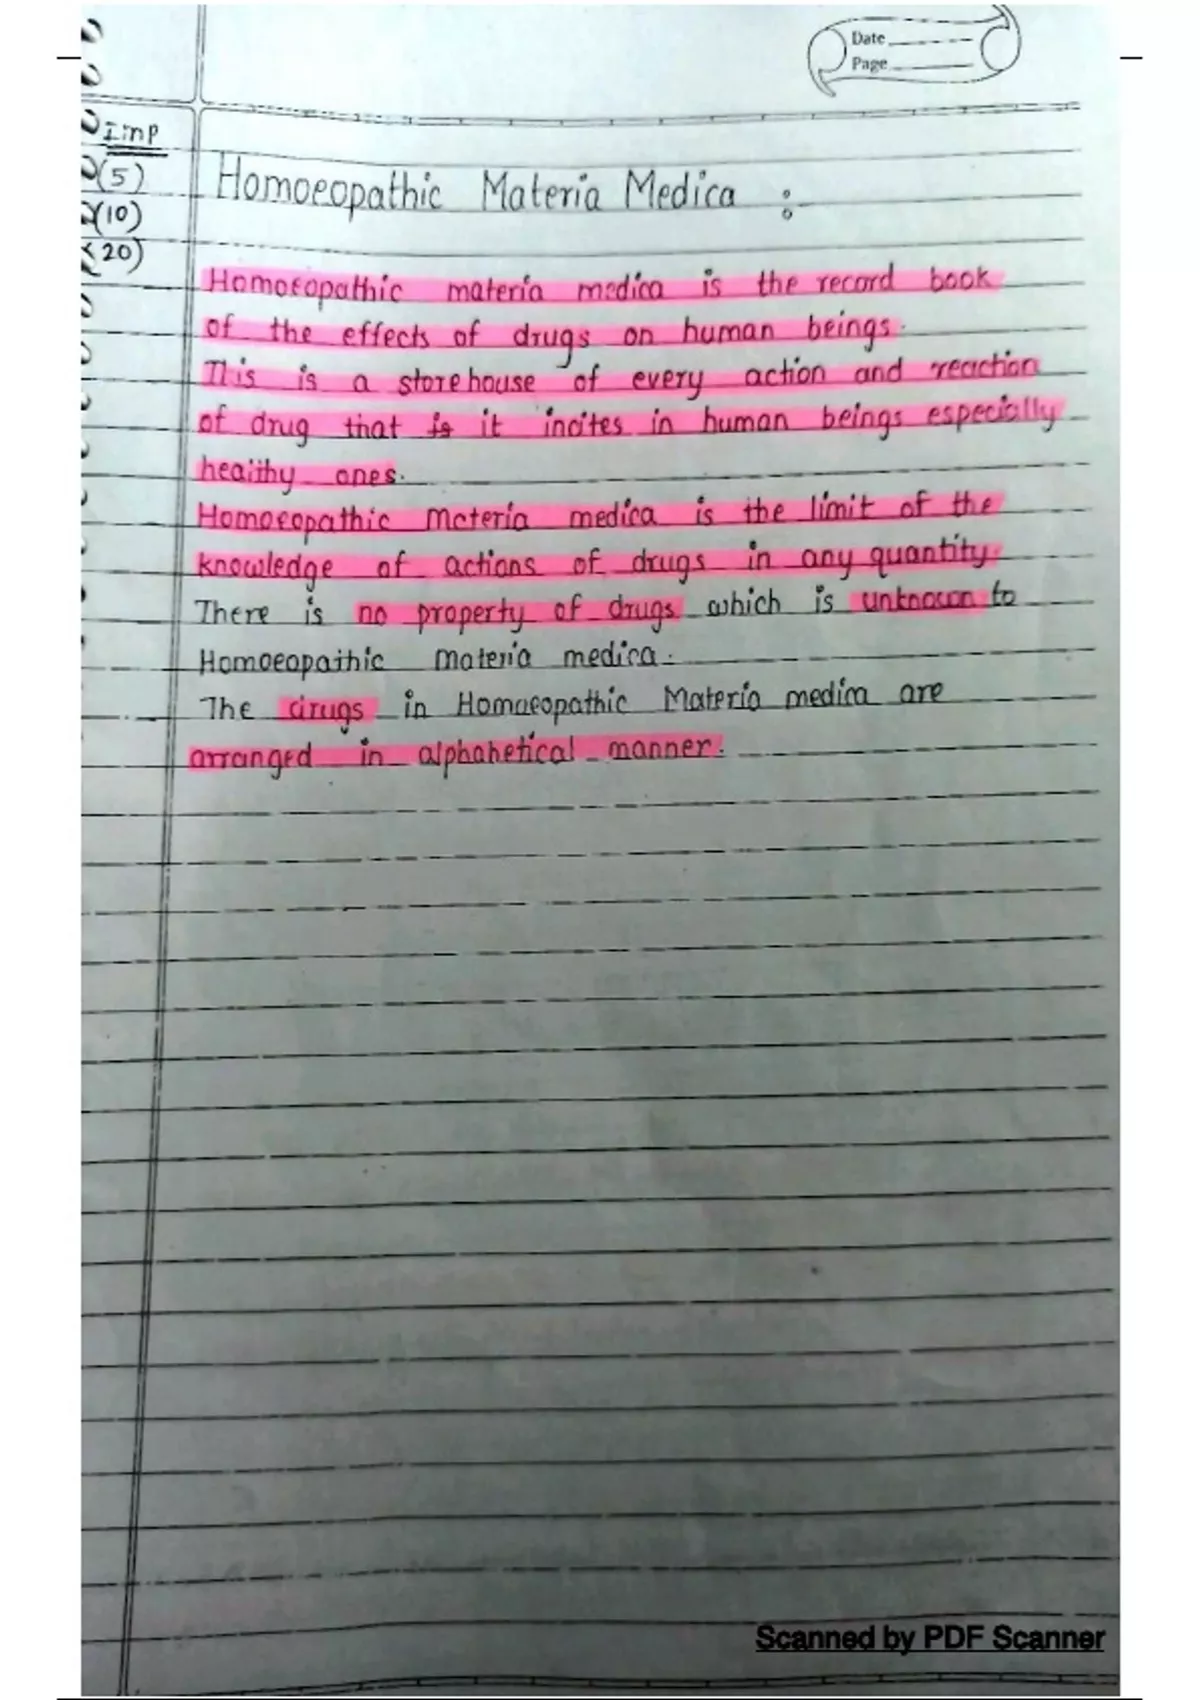 Date
Page
Imp
(5)
(10)
(20)
Homoeopathic Materia Medica :
Homoeopathic materia medica is the record book
of the effects of drugs on human beings.
This is a storehouse of every action and reaction
of drug that is it incites in human beings especially
healthy ones.
Homoeopathic materia medica is the limit of the
knowledge of actions of drugs in any quantity.
There is no property of drugs which is unknown to
Homoeopathic materia medica.
The drugs in Homoeopathic Materia medica are
arranged in alphabetical manner.
Scanned by PDF Scanner